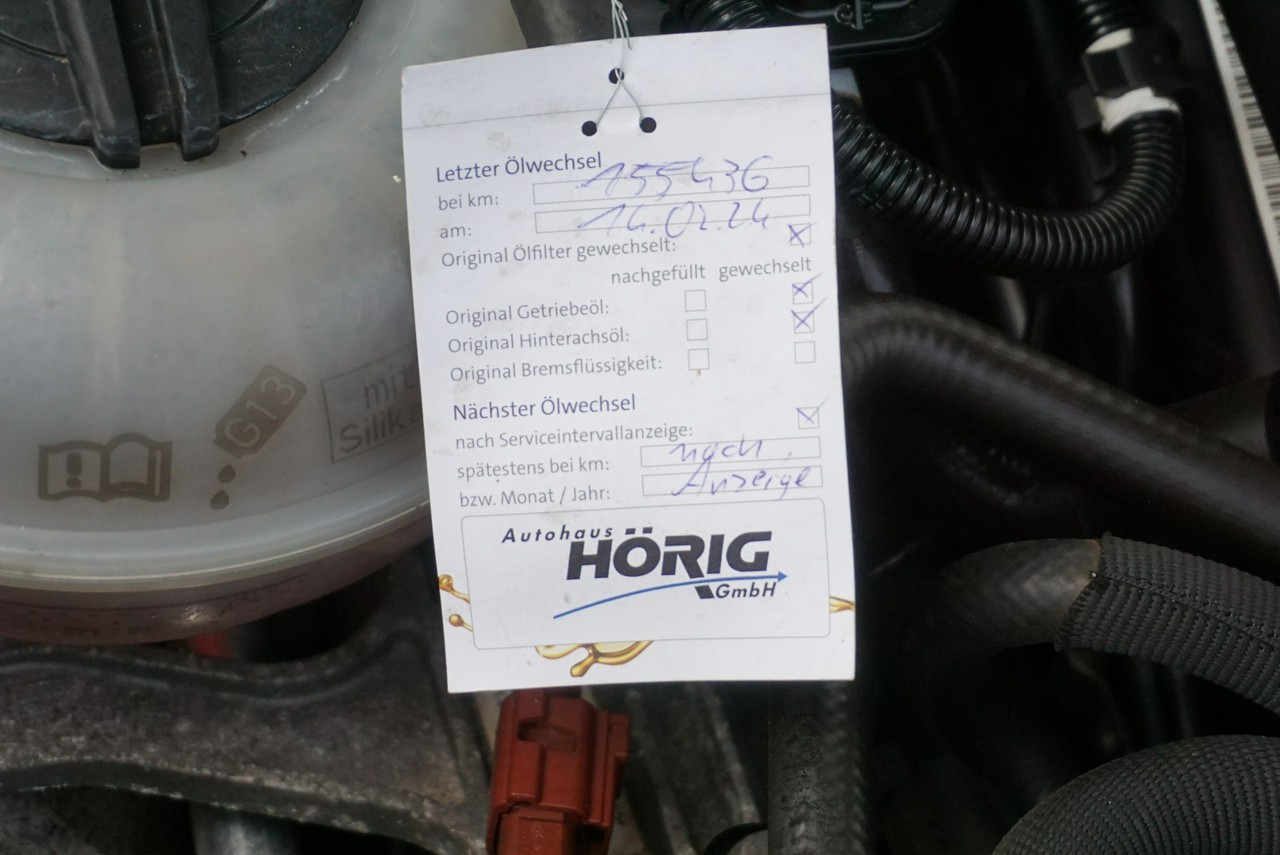 Letzter Ölwechsel
bei km: 155436
am: 14.02.24
Original Ölfilter gewechselt:
nachgefüllt gewechselt
Original Getriebeöl:
Original Hinterachsöl:
Original Bremsflüssigkeit:
Nächster Ölwechsel
nach Serviceintervallanzeige:
spätestens bei km: nach
bzw. Monat / Jahr: Anzeige
Autohaus
HÖRIG
GmbH
G13
mit